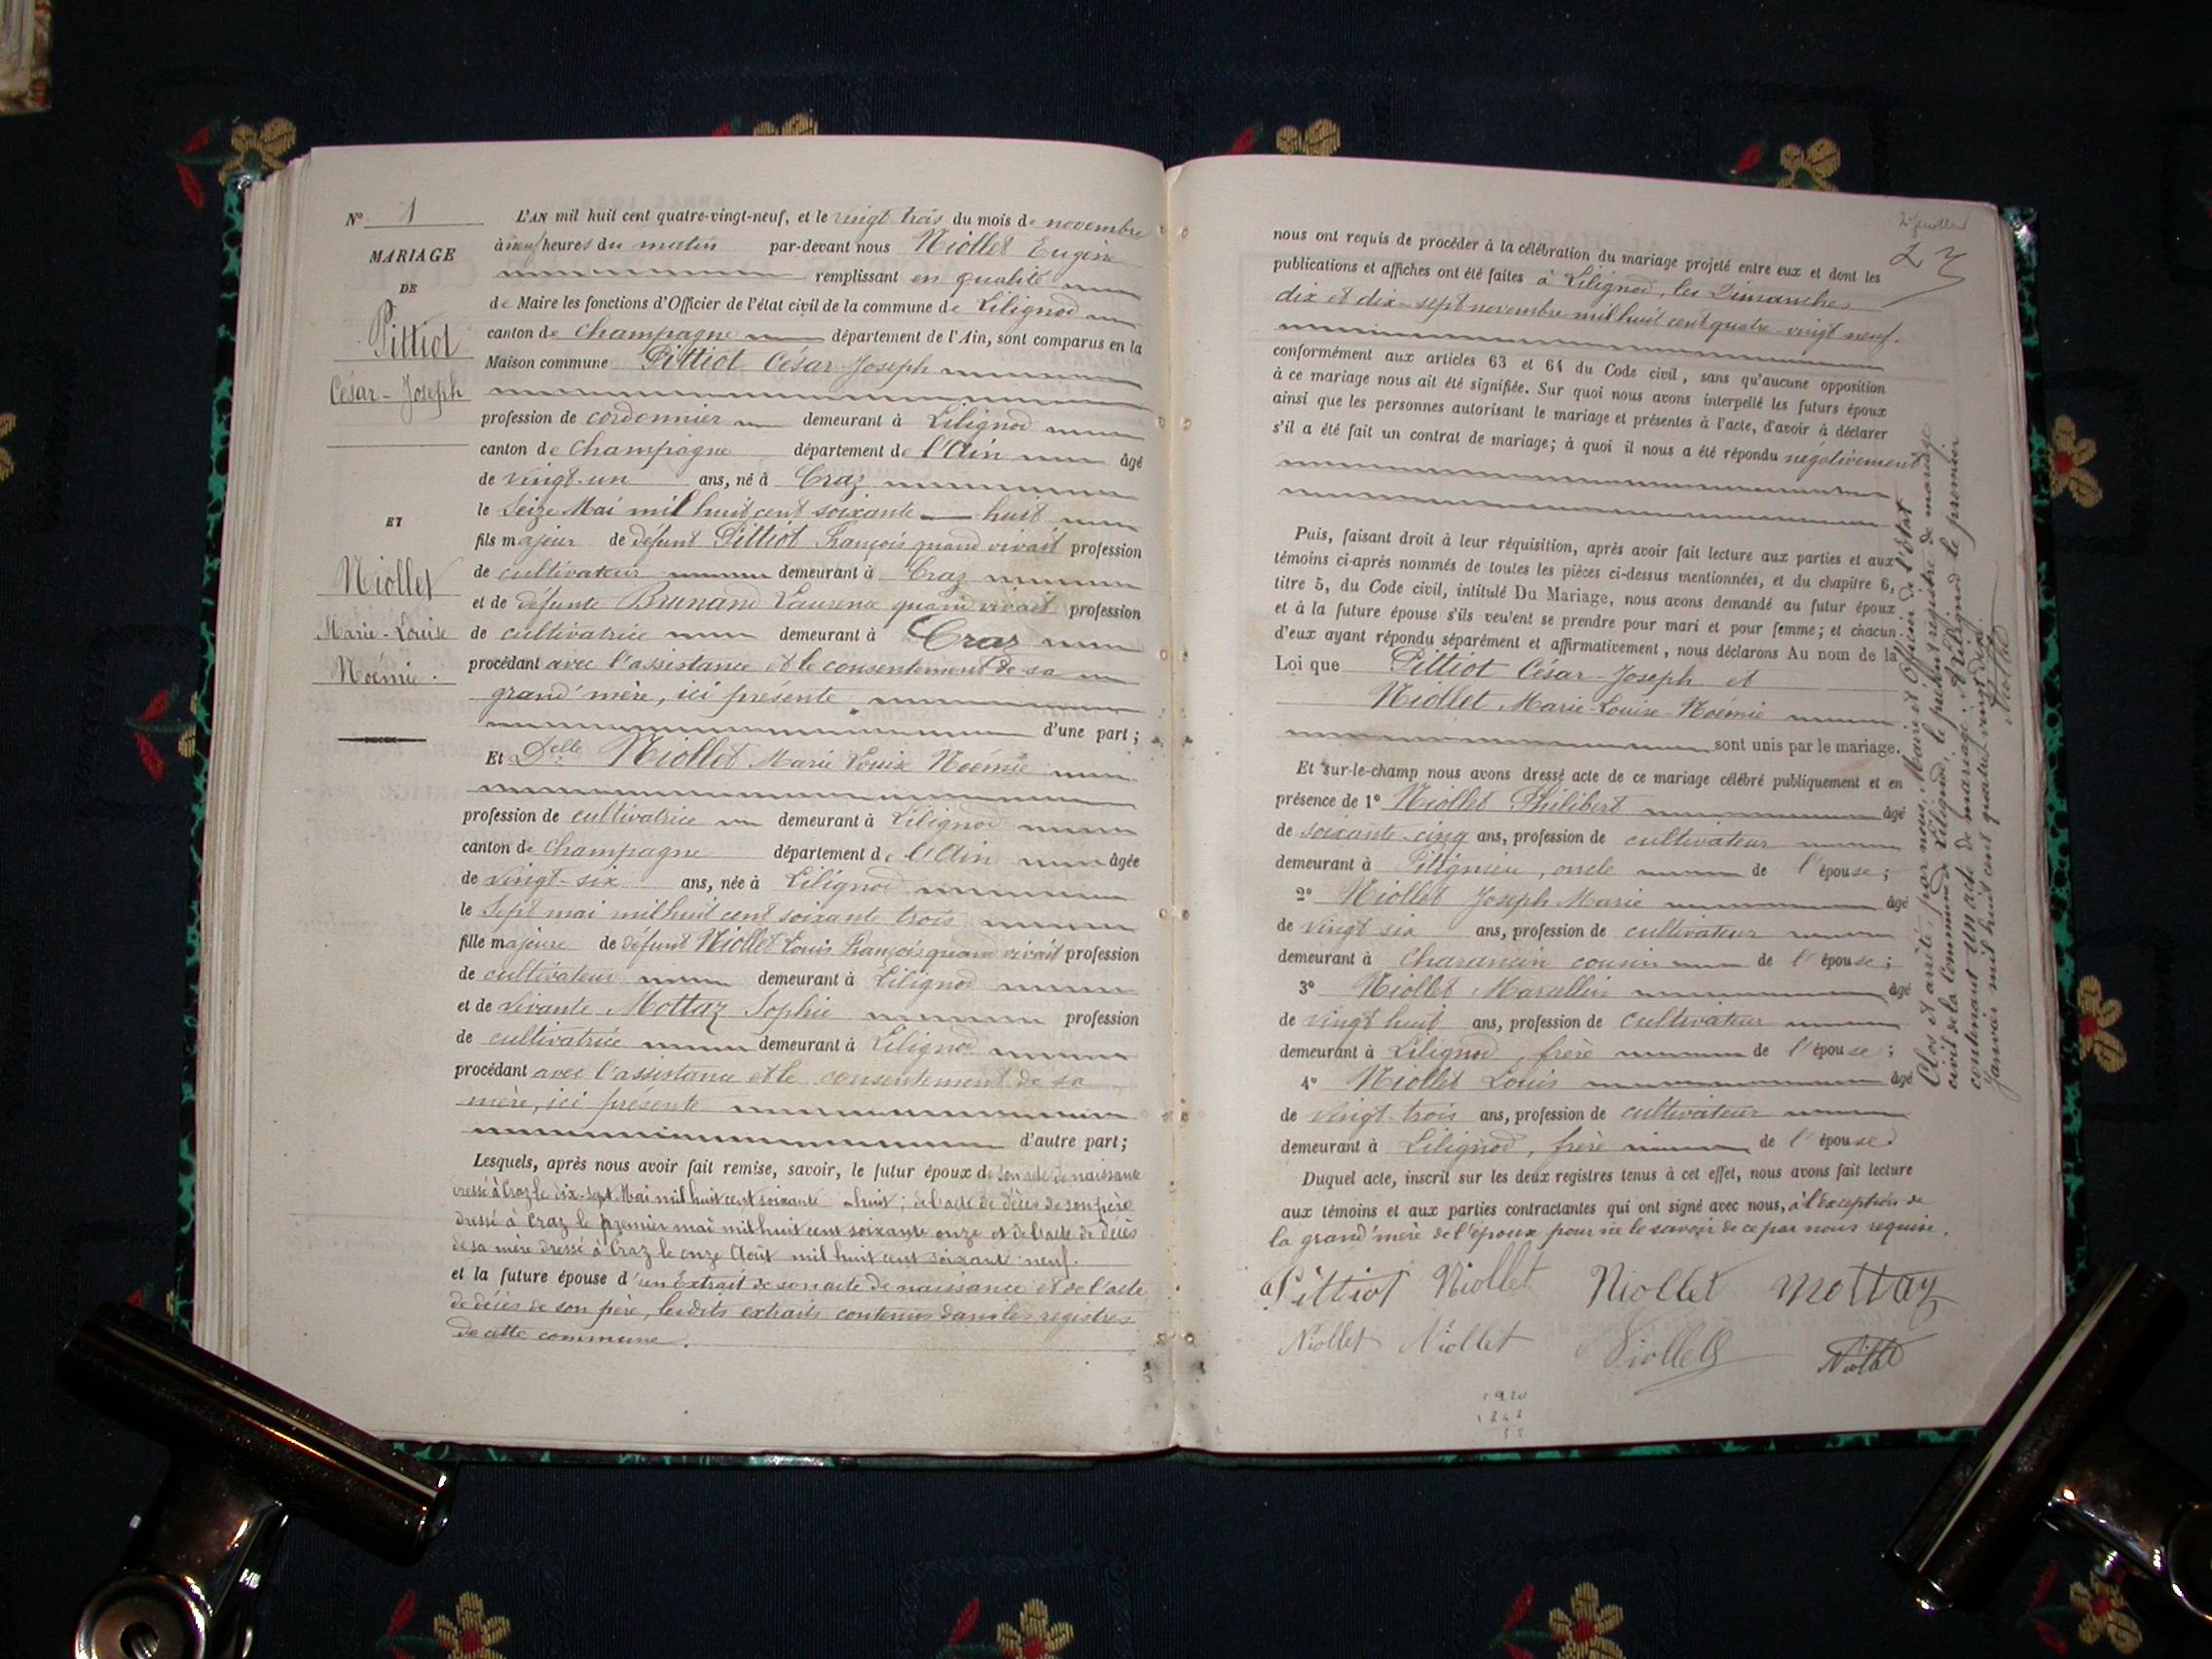 N° 1
MARIAGE
DE
Pittiot
César-Joseph
ET
Niollet
Marie-Louise
Noémie.
L'AN mil huit cent quatre-vingt-neuf, et le vingt trois du mois de novembre
à neuf heures du matin par-devant nous Niollet Eugène
remplissant en qualité
de Maire les fonctions d'Officier de l'état civil de la commune de Lilignod
canton de Champagne département de l'Ain, sont comparus en la
Maison commune Pittiot César Joseph
profession de cordonnier demeurant à Lilignod
canton de Champagne département de l'Ain âgé
de vingt-un ans, né à Craz
le Seize Mai mil huit cent soixante — huit
fils majeur de défunt Pittiot François quand vivait profession
de cultivateur demeurant à Craz
et de défunte Brunand Laurence quand vivait profession
de cultivatrice demeurant à Craz
procédant avec l'assistance et le consentement de sa
grand'mère, ici présente
d'une part ;
Et Delle Niollet Marie Louise Noémie
profession de cultivatrice demeurant à Lilignod
canton de Champagne département de l'Ain âgée
de vingt-six ans, née à Lilignod
le Sept mai mil huit cent soixante trois
fille majeure de défunt Niollet Louis François quand vivait profession
de cultivateur demeurant à Lilignod
et de vivante Mottaz Sophie profession
de cultivatrice demeurant à Lilignod
procédant avec l'assistance et le consentement de sa
mère, ici présente
d'autre part ;
Lesquels, après nous avoir fait remise, savoir, le futur époux de son acte de naissance
dressé à Craz le dix-sept Mai mil huit cent soixante -huit ; de l'acte de décès de son père
dressé à Craz le premier mai mil huit cent soixante onze et de l'acte de décès
de sa mère dressé à Craz le onze Août mil huit cent soixante neuf.
et la future épouse d'un Extrait de son acte de naissance et de l'acte
de décès de son père, lesdits extraits contenus dans les registres
de cette commune.
2e feuillet
nous ont requis de procéder à la célébration du mariage projeté entre eux et dont les
publications et affiches ont été faites à Lilignod, les Dimanches
dix et dix-sept novembre mil huit cent quatre-vingt neuf.
conformément aux articles 63 et 64 du Code civil, sans qu'aucune opposition
à ce mariage nous ait été signifiée. Sur quoi nous avons interpellé les futurs époux
ainsi que les personnes autorisant le mariage et présentes à l'acte, d'avoir à déclarer
s'il a été fait un contrat de mariage ; à quoi il nous a été répondu négativement
Puis, faisant droit à leur réquisition, après avoir fait lecture aux parties et aux
témoins ci-après nommés de toutes les pièces ci-dessus mentionnées, et du chapitre 6,
titre 5, du Code civil, intitulé Du Mariage, nous avons demandé au futur époux
et à la future épouse s'ils veulent se prendre pour mari et pour femme ; et chacun
d'eux ayant répondu séparément et affirmativement, nous déclarons Au nom de la
Loi que Pittiot César-Joseph et
Niollet Marie-Louise-Noémie
sont unis par le mariage.
Et sur-le-champ nous avons dressé acte de ce mariage célébré publiquement et en
présence de 1° Niollet Philibert âgé
de soixante-cinq ans, profession de cultivateur
demeurant à , oncle de l'épouse ;
2° Niollet Joseph Marie âgé
de vingt six ans, profession de cultivateur
demeurant à Charancin cousin de l'épouse ;
3° Niollet Marcellin âgé
de vingt huit ans, profession de cultivateur
demeurant à Lilignod, frère de l'épouse ;
4° Niollet Louis âgé
de vingt-trois ans, profession de cultivateur
demeurant à Lilignod, frère de l'épouse
Duquel acte, inscrit sur les deux registres tenus à cet effet, nous avons fait lecture
aux témoins et aux parties contractantes qui ont signé avec nous, à l'exception de
la grand'mère de l'époux pour ne le savoir de ce par nous requise.
Pittiot Niollet Niollet Mottaz
Niollet Niollet Niollet Niollet
Clos et arrêté par nous, Maire et Officier de l'état
civil de la Commune de Lilignod, le présent registre de mariage
contenant un acte de mariage. A Lilignod le premier
janvier mil huit cent quatre vingt dix.
Niollet